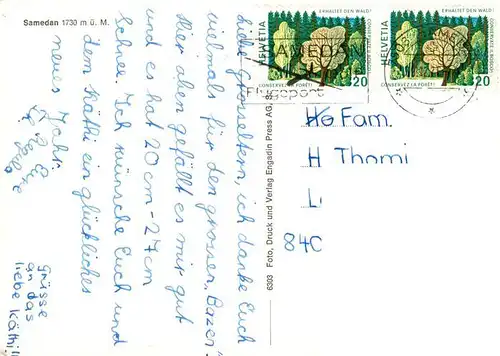 Samedan 1730 m ü. M.
Liebe Grosseltern, ich danke Euch
vielmals für den grossen Bazen
Hier oben gefällt es mir gut
und es hat 20 cm - 27 cm
Schnee. Ich wünsche Euch und
dem Käthi ein glückliches
neues Jahr.
Eure
Grüsse
an das
liebe Käthi
6303 Foto, Druck und Verlag Engadin Press AG, S
HELVETIA
ERHALTET DEN WALD!
CONSERVEZ LA FORÊT!
20
HELVETIA
ERHALTET DEN WALD!
CONSERVEZ LA FORÊT!
20
SAMEDAN
Flugsport
Fam.
H Thomi
L
840